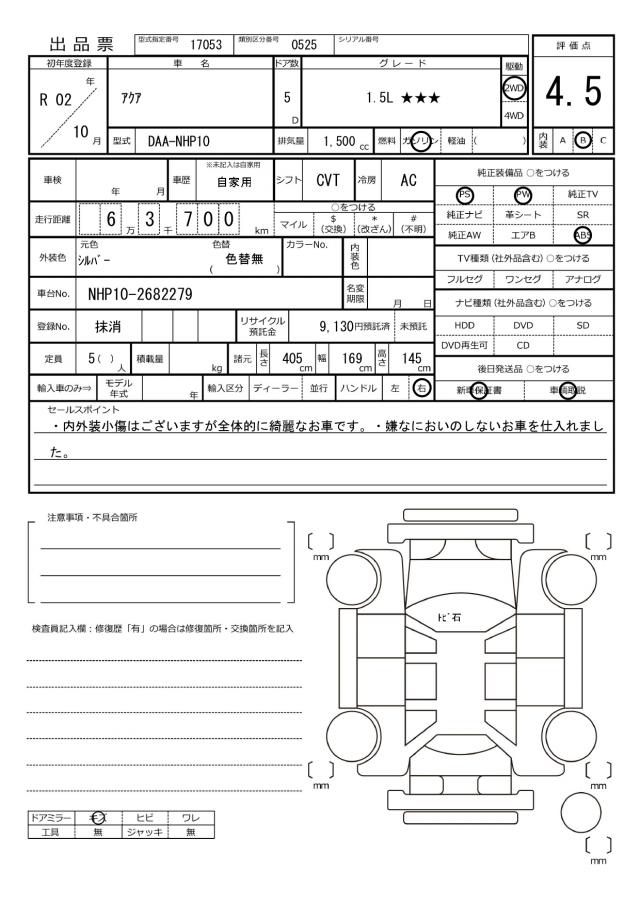 出品票 型式指定番号 17053 類別区分番号 0525 シリアル番号
評価点
4.5
内装 A B C
初年度登録 車名 ドア数 グレード 駆動
R 02 年 10 月
アクア 5 D 1.5L ★★★ 2WD
4WD
型式 DAA-NHP10 排気量 1,500 cc 燃料 ガソリン 軽油 ( )
車検 年 月 車歴 ※未記入は自家用 自家用 シフト CVT 冷房 AC
走行距離 6 万 3 千 7 0 0 km
○をつける
マイル $ (交換) * (改ざん) # (不明)
外装色 元色 シルバー 色替 ( 色替無 ) カラーNo. 内装色
車台No. NHP10-2682279 名変期限 月 日
登録No. 抹消 リサイクル預託金 9,130円預託済 未預託
定員 5( ) 人 積載量 kg 諸元 長さ 405 cm 幅 169 cm 高さ 145 cm
輸入車のみ⇒ モデル年式 年 輸入区分 ディーラー 並行 ハンドル 左 右
純正装備品 ○をつける
PS PW 純正TV
純正ナビ 革シート SR
純正AW エアB ABS
TV種類 (社外品含む) ○をつける
フルセグ ワンセグ アナログ
ナビ種類 (社外品含む) ○をつける
HDD DVD SD
DVD再生可 CD
後日発送品 ○をつける
新車保証書 車輌取説
セールスポイント
・内外装小傷はございますが全体的に綺麗なお車です。・嫌なにおいのしないお車を仕入れまし
た。
注意事項・不具合箇所
検査員記入欄：修復歴「有」の場合は修復箇所・交換箇所を記入
〔 〕 mm
〔 〕 mm
トビ石
〔 〕 mm
〔 〕 mm
〔 〕 mm
ドアミラー キズ ヒビ ワレ
工具 無 ジャッキ 無